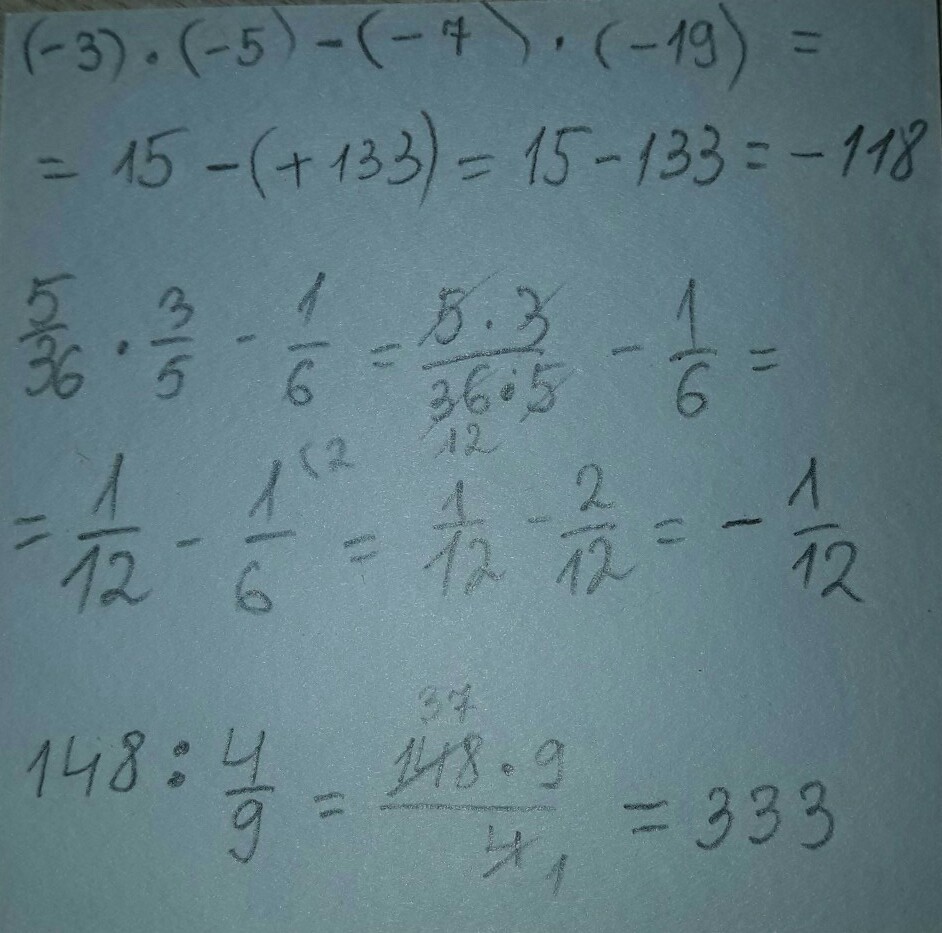 (-3) · (-5) - (-7) · (-19) =
= 15 - (+133) = 15 - 133 = -118
5/36 · 3/5 - 1/6 = 5·3/36·5 - 1/6 =
12
= 1/12 - 1/6 (2 = 1/12 - 2/12 = - 1/12
37
148 : 4/9 = 148·9/4 1 = 333